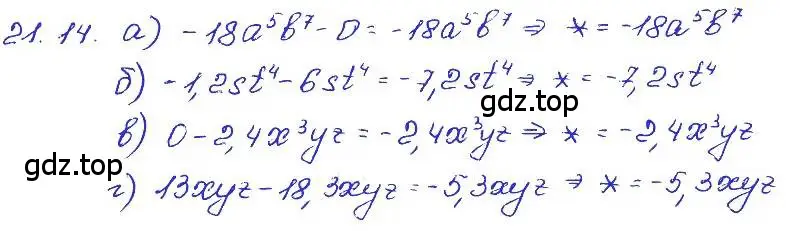 21.14. а) -18a⁵b⁷ - 0 = -18a⁵b⁷ ⇒ * = -18a⁵b⁷
б) -1,2st⁴ - 6st⁴ = -7,2st⁴ ⇒ * = -7,2st⁴
gdz.top
в) 0 - 2,4x³yz = -2,4x³yz ⇒ * = -2,4x³yz
gdz.top
г) 13xyz - 18,3xyz = -5,3xyz ⇒ * = -5,3xyz